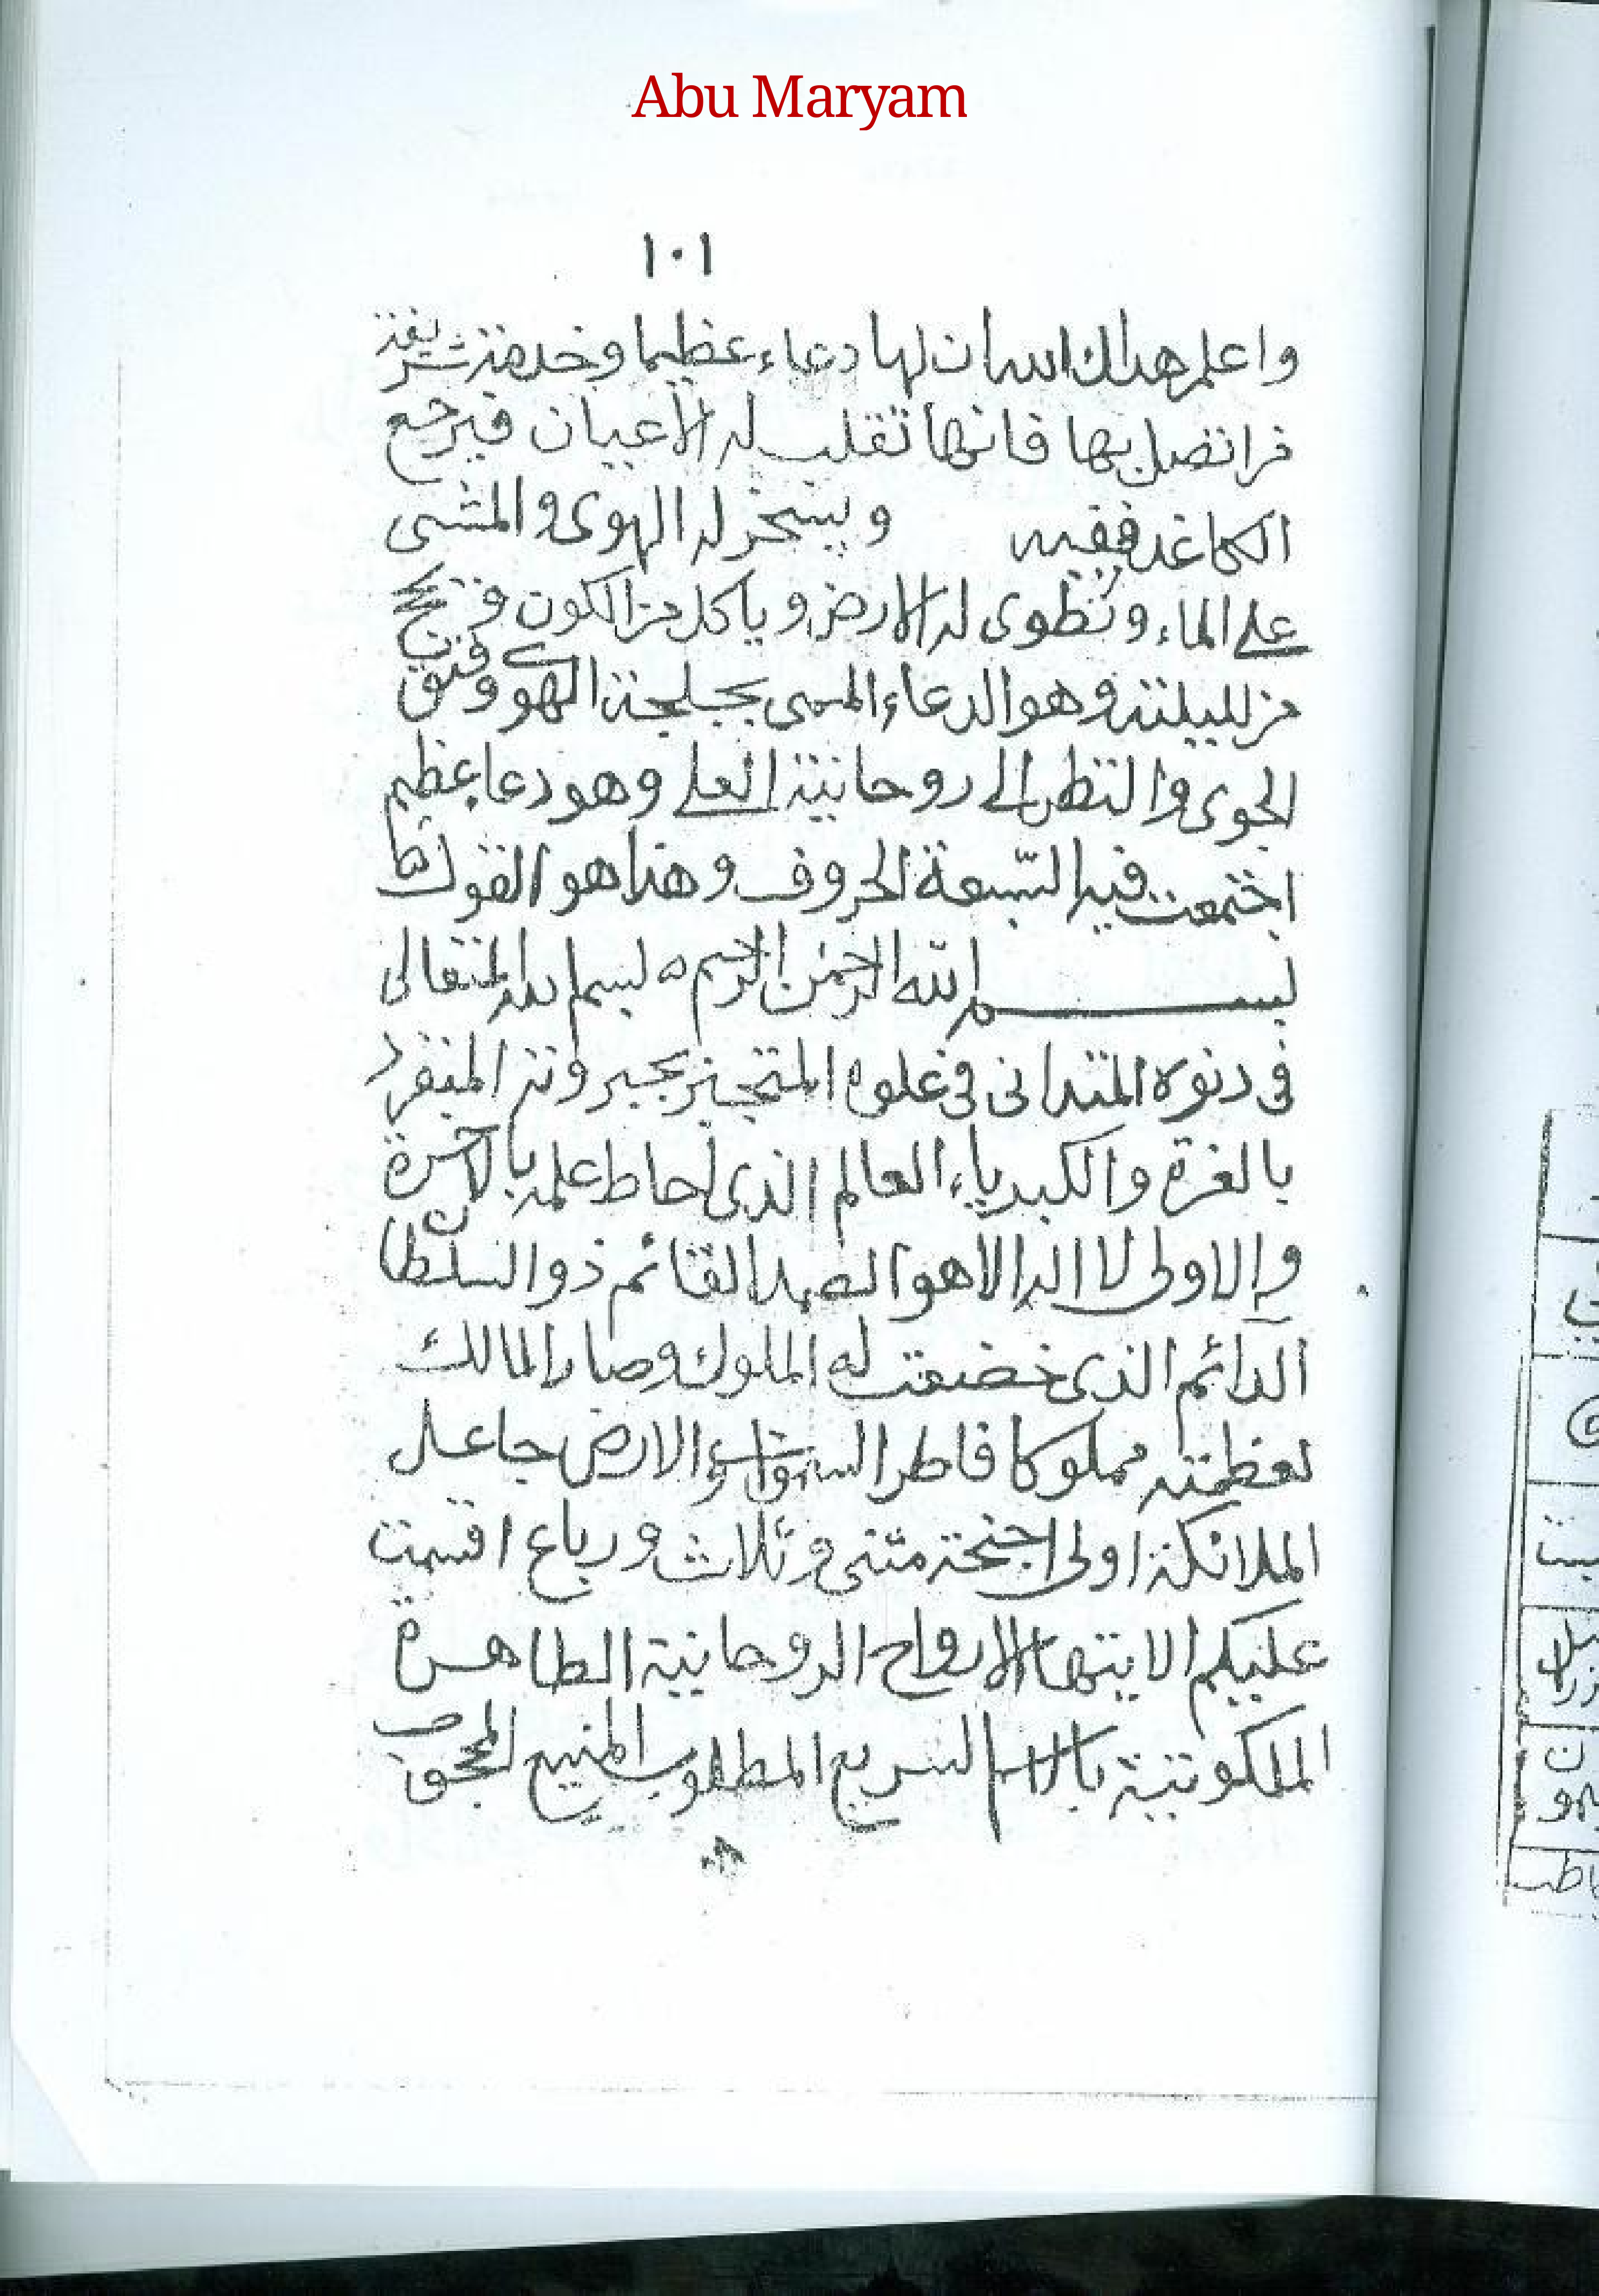 Abu Maryam
١٠١
واعلم هداك الله ان لها دعاء عظيما وخدمة شريفة
فمن اتصل بها فانها تقلب له الاعيان فيرجع
الكاغد فقيه ويسخر له الهوى والمشى
على الماء وتطوى له الارض وياكل من الكون ويحج
من ليلته وهو الدعاء المسمى بجلجة الهوى وفتق
الجوى والنظر الى روحانية العلى وهو دعا عظيم
اجتمعت فيه السبعة الحروف وهذا هو القول
بسم الله الرحمن الرحيم بسم الله المتعالى
فى دنوه المتدانى فى علوه المتجبر بجبروته المنفرد
بالعزة والكبرياء العالم الذى احاط علمه بالاخرة
والاولى لا اله الا هو الصمد القائم ذو السلطان
الدائم الذى خضعت له الملوك وصار المالك
لعظمته مملوكا فاطر السموات والارض جاعل
الملائكة اولى اجنحة مثنى وثلاث ورباع اقسمت
عليكم الا يتها الارواح الروحانية الطاهرة
الملكوتية بالاسم السريع المطلوب المنيع المحجوب